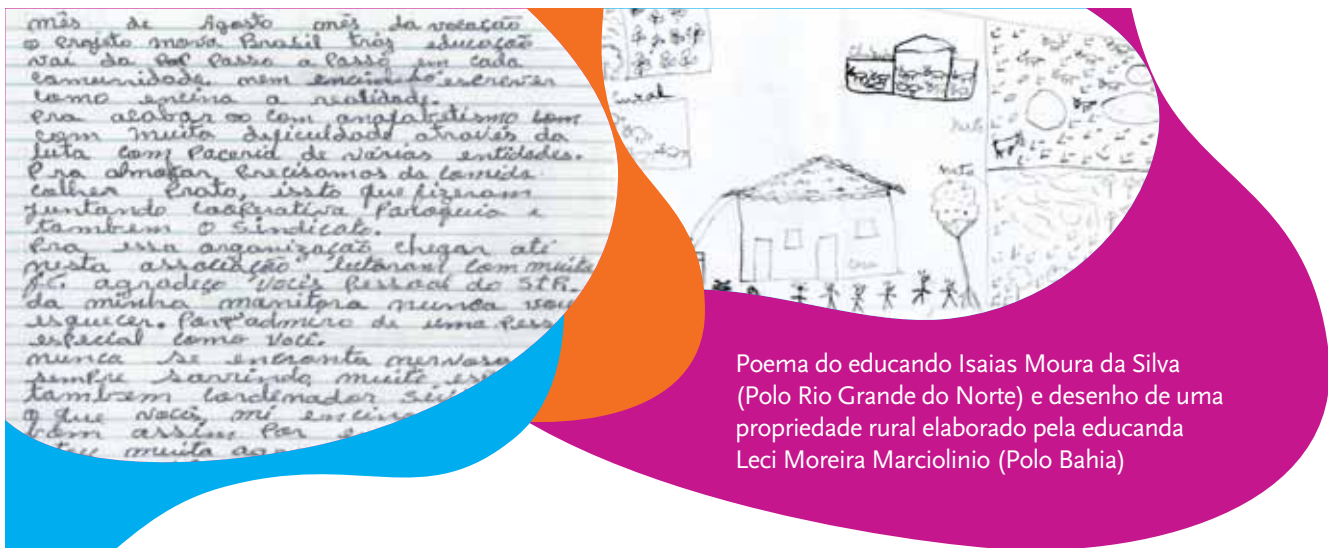 mês de Agosto mês da vocação
o projeto mova Brasil trás educação
vai da passo a passo em cada
comunidade nem encinando escrever
como encina a realidade.
pra acabar com anafabetismo com
com muita dificuldade através da
luta com Paceria de várias entidades.
Pra almoçar, precisamos da comida
colher Prato, issto que fizeram
juntando cooperativa Paroquia e
tambem o sindicato.
Pra essa organização chegar até
nesta associação lutaram com muita
agradeço vocês Pessoal do STR.
da minha manitora nunca vou
esquecer. admiro de uma Pess
especial como você.
nunca se encronta nervosa
sempre sorrindo muito es
tambem cordenador
o que vocês, mi encina
bom assim Por e
muita ag
Curral
mata
casa
Poema do educando Isaias Moura da Silva
(Polo Rio Grande do Norte) e desenho de uma
propriedade rural elaborado pela educanda
Leci Moreira Marciolinio (Polo Bahia)